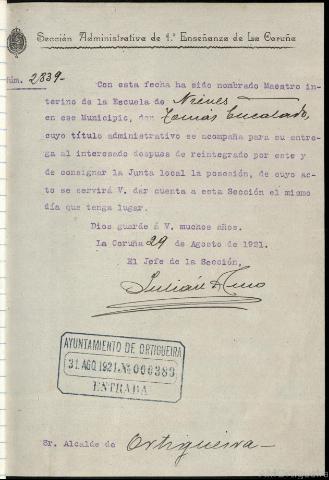 Sección Administrativa de 1.ª Enseñanza de La Coruña
Núm. 2839-
Con esta fecha ha sido nombrado Maestro in-
terino de la Escuela de Nieves
en ese Municipio, don Tomás
cuyo título administrativo se acompaña para su entre-
ga al interesado despues de reintegrado por este y
de consignar la Junta local la posesión, de cuyo ac-
to se servirá V. dar cuenta a esta Sección el mismo
día que tenga lugar.
Dios guarde á V. muchos años.
La Coruña 29 de Agosto de 1921.
El Jefe de la Sección,
Julián
AYUNTAMIENTO DE ORTIGUEIRA
31 AGO. 1921 - No 000383
ENTRADA
Sr. Alcalde de Ortigueira-